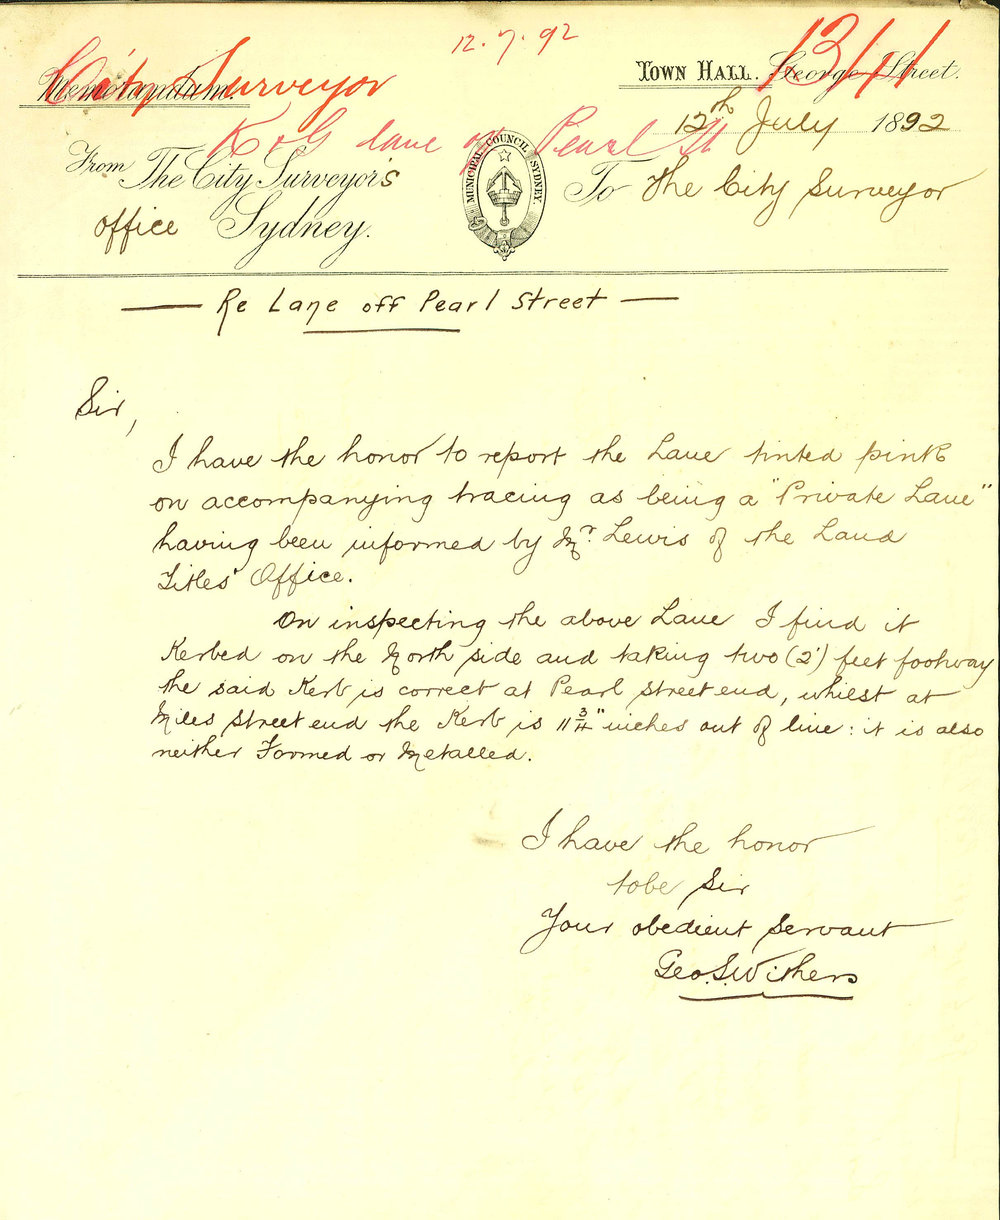 12.7.92
1311
City Surveyor
Memorandum.
Town Hall. George Street.
K & G lane off Pearl St
12th July 1892
MUNICIPAL COUNCIL SYDNEY.
From The City Surveyor's
office Sydney.
To The City Surveyor
Re Lane off Pearl Street
Sir,
I have the honor to report the Lane tinted pink
on accompanying tracing as being a "Private Lane"
having been informed by Mr. Lewis of the Land
Titles' Office.
On inspecting the above Lane I find it
Kerbed on the North side and taking two (2') feet footway
the said Kerb is correct at Pearl street end, whilst at
Miles street end the Kerb is 11 3/4" inches out of line: it is also
neither Formed or Metalled.
I have the honor
to be Sir
Your obedient servant
Geo. S. Withers